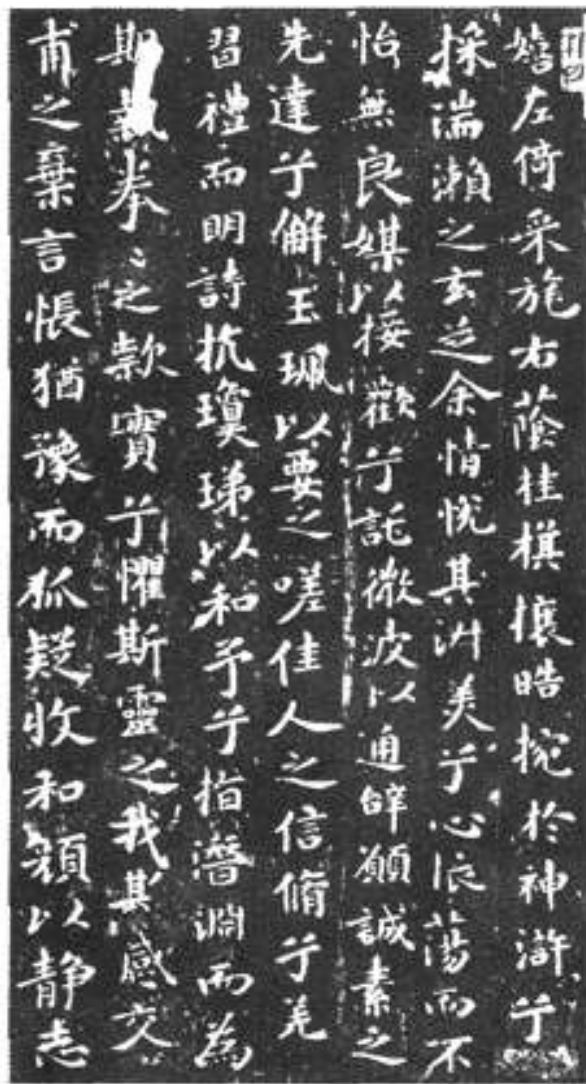 嬉左倚采旄右蔭桂棋攘皓捥於神滸兮
採湍瀨之玄芝余情悅其淑美兮心振蕩而不
怡無良媒以接歡兮託微波以通辭願誠素之
先達兮解玉珮以要之嗟佳人之信脩兮羌
習禮而明詩抗瓊珶以和予兮指潛淵而為
期執拳〻之款實兮懼斯靈之我其感交
甫之棄言悵猶豫而狐疑收和顏以靜志